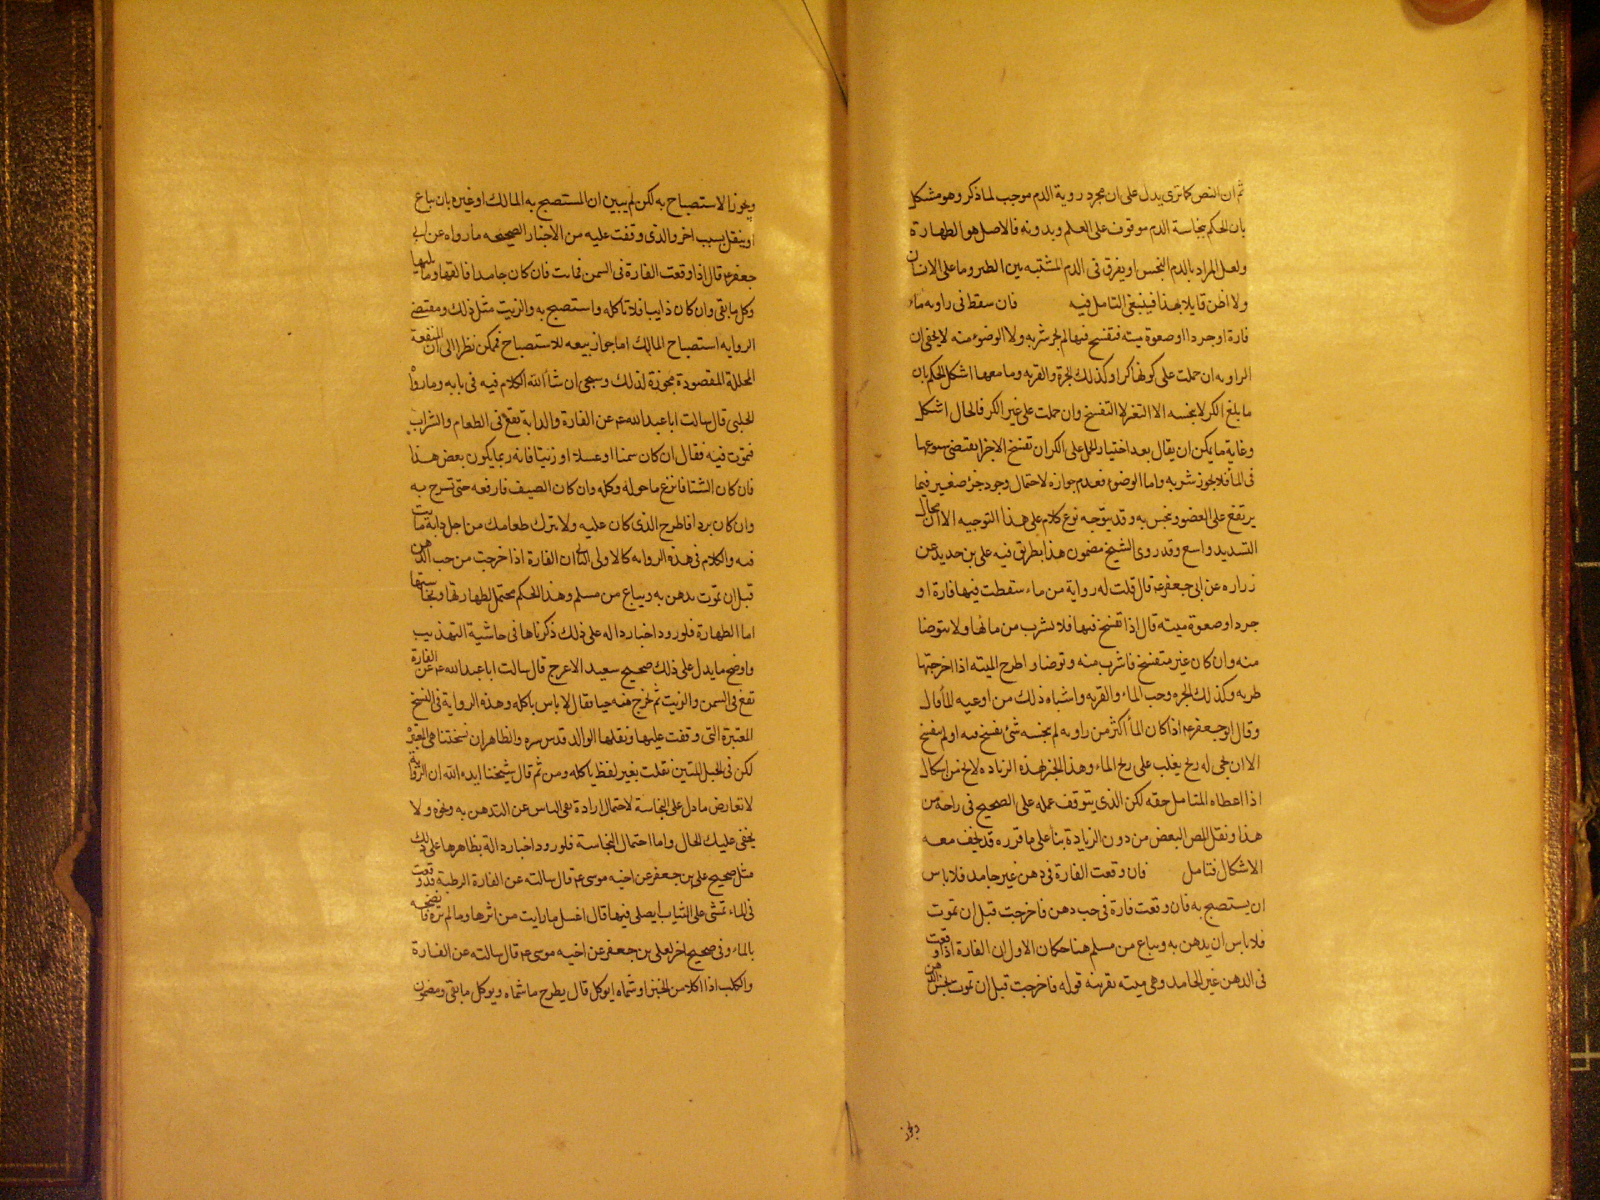 ثم ان النص كما ترى يدل على ان مجرد روية الدم موجب لما ذكر وهو مشكل
بان الحكم بنجاسة الدم موقوف على العلم وبدونه فالاصل هو الطهارة
ولعل المراد بالدم النجس او يفرق فى الدم المشتبه بين الطير وما على الانسان
ولا اظن قايلا بهذا فينبغى التامل فيه فان سقط فى راويه ماء
فارة او جرذ او صعوة ميته فتفسخ فيها لم يجز شربه ولا الوضوء منه لا يخفى ان
الراويه ان حملت على كونها كرا وكذلك الجرة والقربه وما معهما اشكل الحكم بان
ما بلغ الكر لا ينجسه الا التغير لا التفسخ وان حملت على غير الكر فالحال اشكل
وغاية ما يمكن ان يقال بعد اختيار الحمل على الكر ان تفسخ الاجزا يقتضى شيوعها
فى الما فلا يجوز شربه واما الوضوء فعدم جوازه لاحتمال وجود جزء صغير فيما
يرتفع على العضو ونجس به وقد يتوجه نوع كلام على هذا التوجيه الا ان مجال
التسديد واسع وقد روى الشيخ مضمون هذا بطريق فيه على بن حديد عن
زراره عن ابى جعفر ع قال قلت له رواية من ماء سقطت فيها فارة او
جرذ او صعوة ميته قال اذا تفسخ فيها فلا تشرب من مائها ولا تتوضا
منه وان كان غير متفسخ فاشرب منه وتوضا واطرح الميته اذا اخرجتها
طريه وكذلك الجره وحب الماء والقربه واشباه ذلك من اوعيه الما قال
وقال ابو جعفر ع اذا كان الما اكثر من راويه لم ينجسه شئ تفسخ فيه او لم يتفسخ
الا ان يجى له ريح يغلب على ريح الماء وهذا الخبر بهذه الزياده لا يخ من اشكال
اذا اعطاه المتامل حقه لكن الذى يتوقف عمله على الصحيح فى راحة من
هذا ونقل النص البعض من دون الزيادة بنا على ما قرره قد يخف معه
الاشكال فتامل فان وقعت الفارة فى دهن غير جامد فلا باس
ان يستصبح به فان وقعت فارة فى حب دهن فاخرجت قبل ان تموت
فلا باس ان يدهن به ويباع من مسلم هنا حكمان الاول ان الفارة اذا وقعت
فى الدهن غير الجامد وهى ميته بقرينه قوله فاخرجت قبل ان تموت ينجس الدهن
ويجوز
ويجوز الاستصباح به لكن لم يبين ان المستصبح به المالك او غيره بان يباع
او ينقل بسبب اخر والذى وقفت عليه من الاخبار الصحيحه ما رواه عن ابى
جعفر ع قال اذا وقعت الفارة فى السمن فماتت فان كان جامدا فالقها وما يليها
وكل ما بقى وان كان ذايبا فلا تاكله واستصبح به والزيت مثل ذلك ومقتضى
الروايه استصباح المالك اما جواز بيعه للاستصباح فممكن نظرا الى ان المنفعة
المحللة المقصودة مجوزة لذلك وسيجى ان شاالله الكلام فيه فى بابه وما رواه
الحلبى قال سالت ابا عبدالله ع عن الفارة والدابة تقع فى الطعام والشراب
فتموت فيه فقال ان كان سمنا او عسلا او زيتا فانه ربما يكون بعض هذا
فان كان الشتا فانزع ما حوله وكله وان كان الصيف فارفعه حتى تسرج به
وان كان بردا فاطرح الذى كان عليه ولا تترك طعامك من اجل دابة ماتت
فيه والكلام فى هذه الروايه كالاولى الثانى ان الفارة اذا خرجت من حب الدهن
قبل ان تموت يدهن به ويباع من مسلم وهذا الحكم محتمل لطهارتها ونجاستها
اما الطهارة فلورود اخبار داله على ذلك ذكرناها فى حاشية التهذيب
واوضح ما يدل على ذلك صحيح سعيد الاعرج قال سالت ابا عبدالله ع عن الفارة
تقع فى السمن والزيت ثم تخرج منه حيا فقال لا باس باكله وهذه الرواية فى النسخ
المعتبرة التى وقفت عليها ونقلها الوالد قدس سره والظاهران نسختنا هى المعتبرة
لكن فى الحبل المتين نقلت بغير لفظ ياكله ومن ثم قال شيخنا ايده الله ان الرواية
لا تعارض ما دل على النجاسة لاحتمال ارادة نفى الباس عن التدهن به ونحوه ولا
يخفى عليك الحال واما احتمال النجاسة فلورود اخبار دالة بظاهرها على ذلك
مثل صحيح على بن جعفر عن اخيه موسى ع قال سالته عن الفارة الرطبة قد وقعت
فى الماء تمشى على الثياب ايصلى فيها قال اغسل ما رايت من اثرها وما لم تره فانضحه
بالماء وفى صحيح اخر لعلى بن جعفر عن اخيه موسى ع قال سالته عن الفارة
والكلب اذا اكلا من الخبز او شماه ايوكل قال يطرح ما شماه ويوكل ما بقى ومضمون